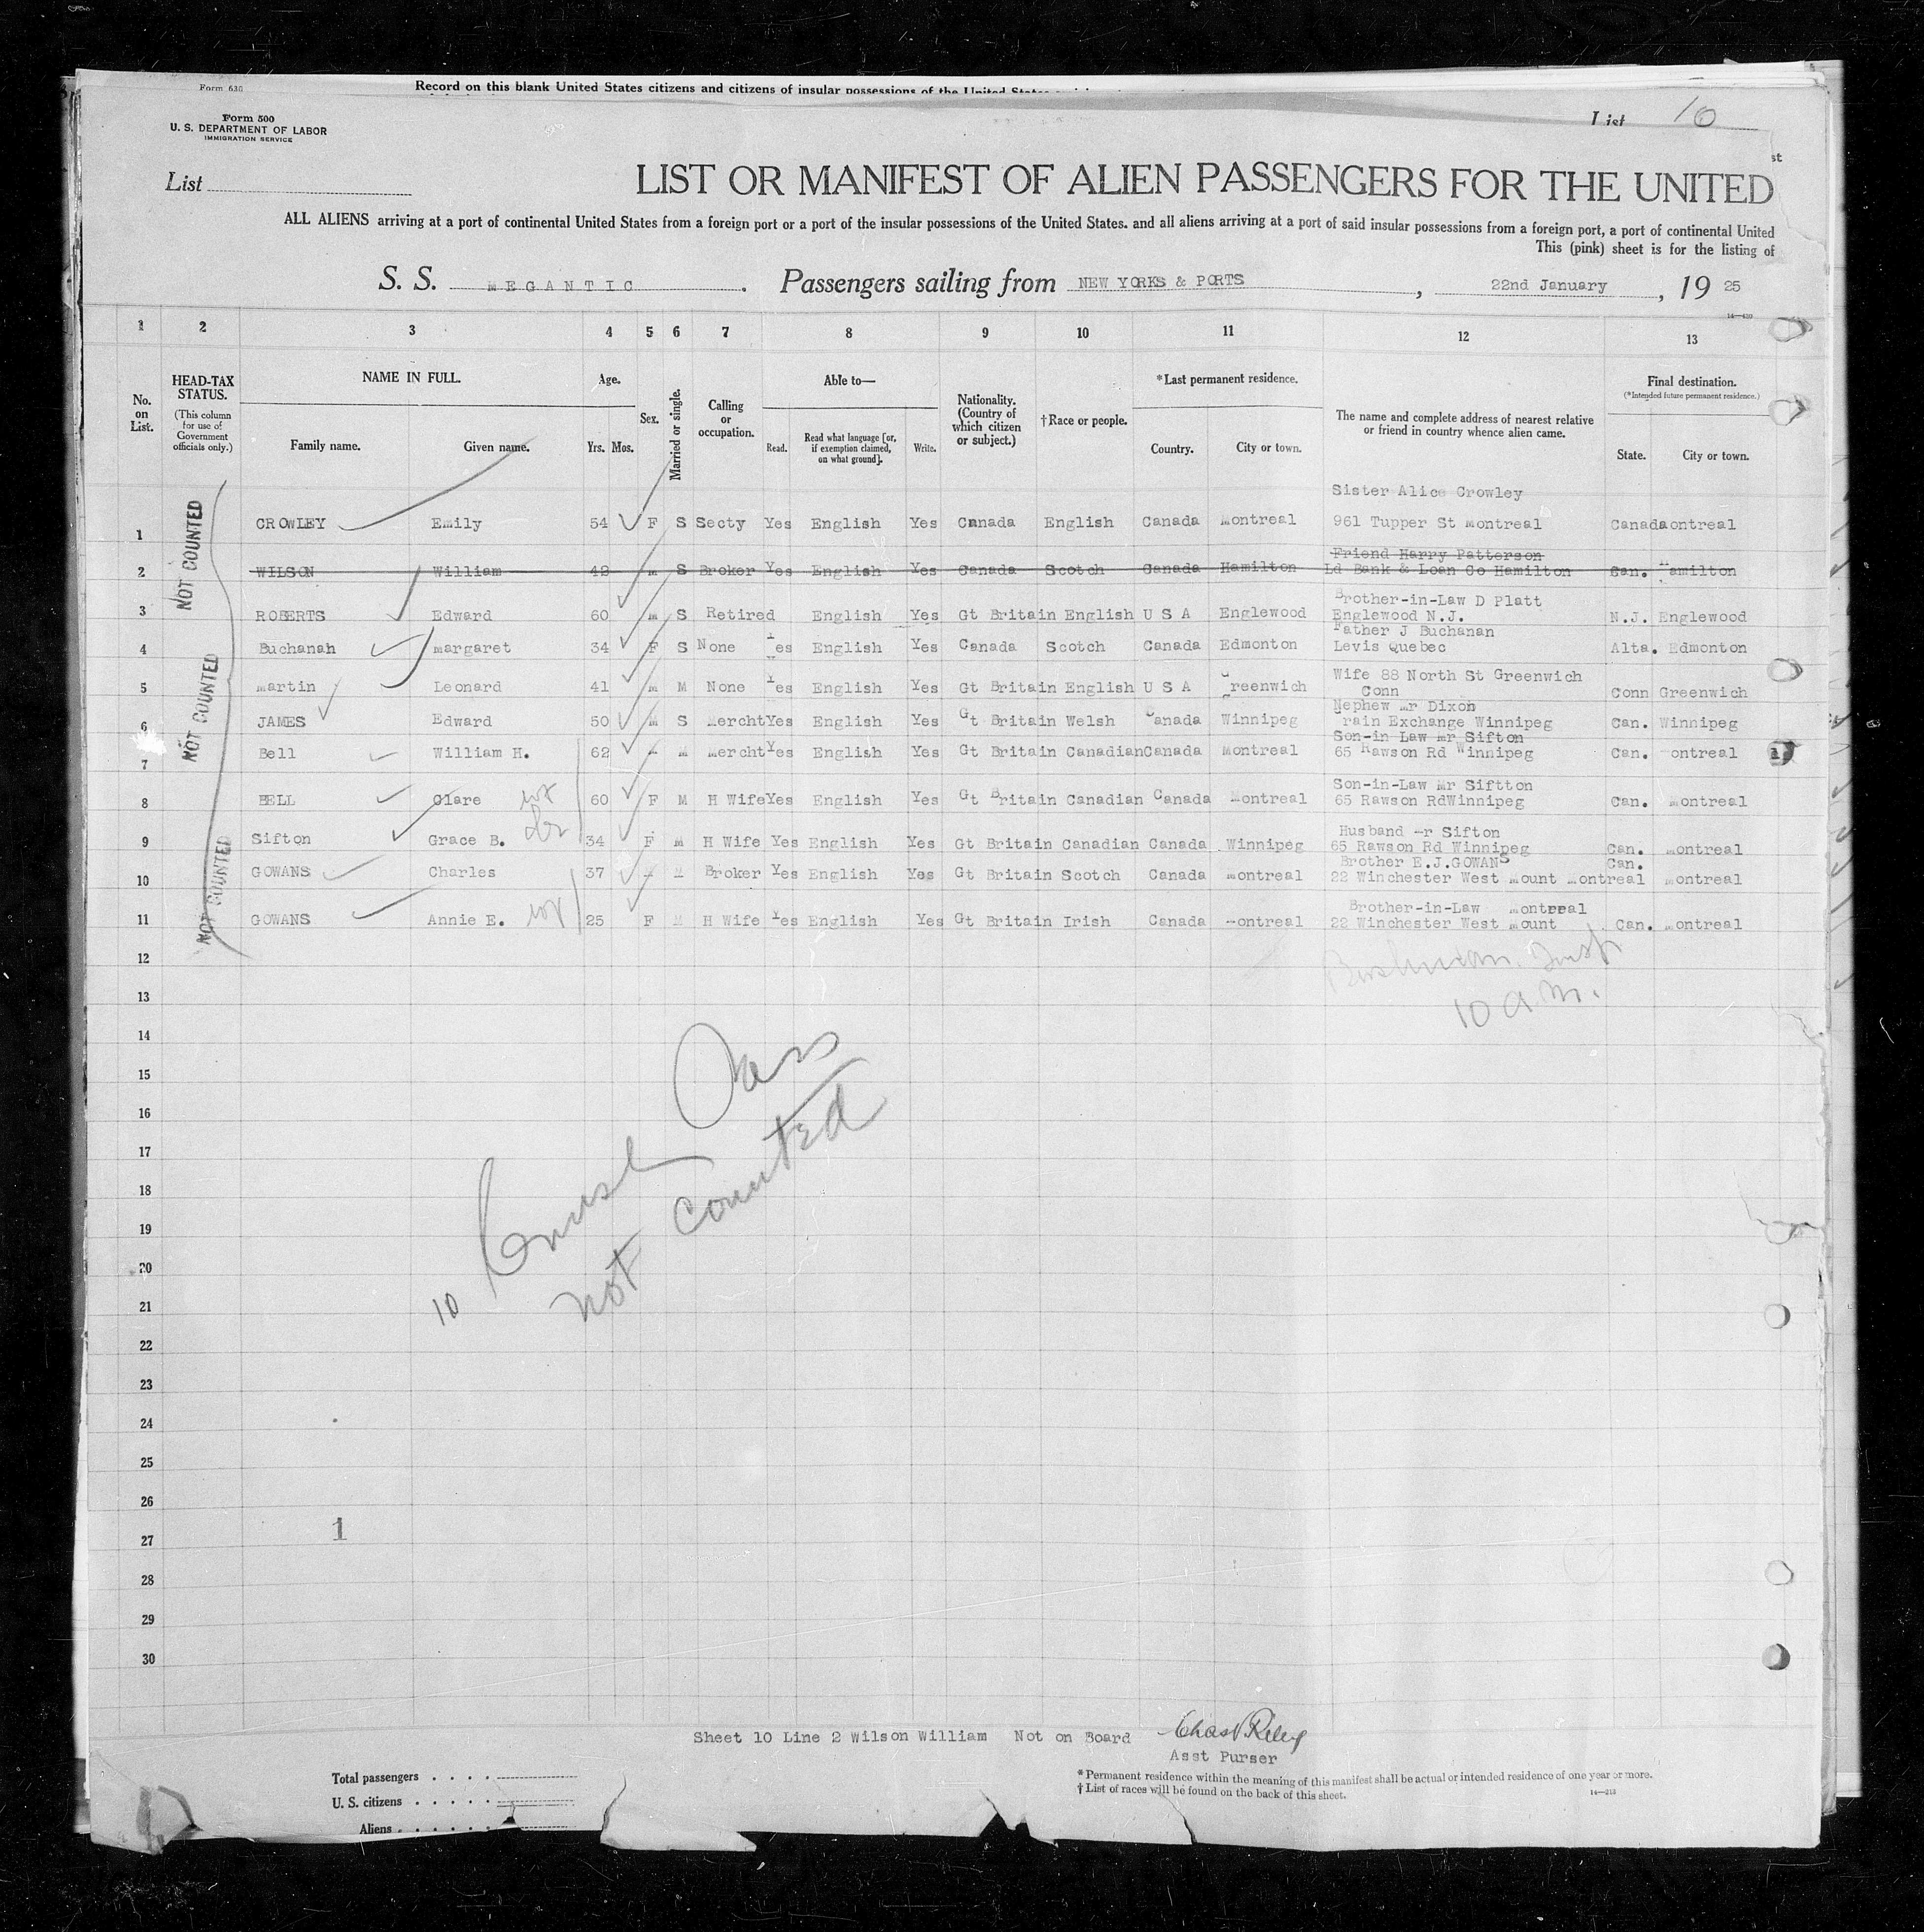 Form 630
Record on this blank United States citizens and citizens of insular possessions of the United States
Form 500
U. S. DEPARTMENT OF LABOR
IMMIGRATION SERVICE
List 10
st
List
LIST OR MANIFEST OF ALIEN PASSENGERS FOR THE UNITED
ALL ALIENS arriving at a port of continental United States from a foreign port or a port of the insular possessions of the United States. and all aliens arriving at a port of said insular possessions from a foreign port, a port of continental United
This (pink) sheet is for the listing of
S. S. MEGANTIC . Passengers sailing from NEW YORKS & PORTS , 22nd January , 19 25
14—420
1 2 3 4 5 6 7 8 9 10 11 12 13
No. on List.
HEAD-TAX STATUS.
(This column for use of Government officials only.)
NAME IN FULL.
Family name. Given name.
Age.
Yrs. Mos.
Sex.
Married or single.
Calling or occupation.
Able to—
Read. Read what language [or, if exemption claimed, on what ground]. Write.
Nationality. (Country of which citizen or subject.)
†Race or people.
*Last permanent residence.
Country. City or town.
The name and complete address of nearest relative or friend in country whence alien came.
Final destination.
(*Intended future permanent residence.)
State. City or town.
NOT COUNTED
NOT COUNTED
NOT COUNTED
Sister Alice Crowley
1 CROWLEY Emily 54 F S Secty Yes English Yes Canada English Canada Montreal 961 Tupper St Montreal Canadaontreal
Friend Harry Patterson
2 WILSON William 42 m S Broker Yes English Yes Canada Scotch Canada Hamilton Ld Bank & Loan Co Hamilton Can. Hamilton
Brother-in-Law D Platt
3 ROBERTS Edward 60 m S Retired English Yes Gt Britain English U S A Englewood Englewood N.J. N.J. Englewood
Father J Buchanan
4 Buchanan margaret 34 F S None Yes English Yes Canada Scotch Canada Edmonton Levis Quebec Alta. Edmonton
Wife 88 North St Greenwich
5 martin Leonard 41 m M None Yes English Yes Gt Britain English U S A Greenwich Conn Conn Greenwich
Nephew mr Dixon
6 JAMES Edward 50 M S mercht Yes English Yes Gt Britain Welsh Canada Winnipeg rain Exchange Winnipeg Can. Winnipeg
Son-in Law mr Sifton
7 Bell William H. 62 M mercht Yes English Yes Gt Britain Canadian Canada montreal 65 Rawson Rd Winnipeg Can. ontreal
Son-in-Law Mr Siftton
8 BELL Clare 60 F M H Wife Yes English Yes Gt Britain Canadian Canada Montreal 65 Rawson RdWinnipeg Can. montreal
Husband r Sifton
9 Sifton Grace B. 34 F M H Wife Yes English Yes Gt Britain Canadian Canada Winnipeg 65 Rawson Rd Winnipeg Can. montreal
Brother E.J.GOWANS Can.
10 GOWANS Charles 37 M Broker Yes English Yes Gt Britain Scotch Canada montreal 22 Winchester West mount montreal montreal
Brother-in-Law montreal
11 GOWANS Annie E. 25 F M H Wife Yes English Yes Gt Britain Irish Canada ontreal 22 Winchester West mount Can. montreal
12
13
10 a.m.
14
15
16
17
18
19
20
21
22
23
24
25
26
27
28
29
30
Not Counted
10
1
Sheet 10 Line 2 Wilson William Not on Board
Asst Purser
Total passengers
U. S. citizens
Aliens
*Permanent residence within the meaning of this manifest shall be actual or intended residence of one year or more.
†List of races will be found on the back of this sheet.
14—213